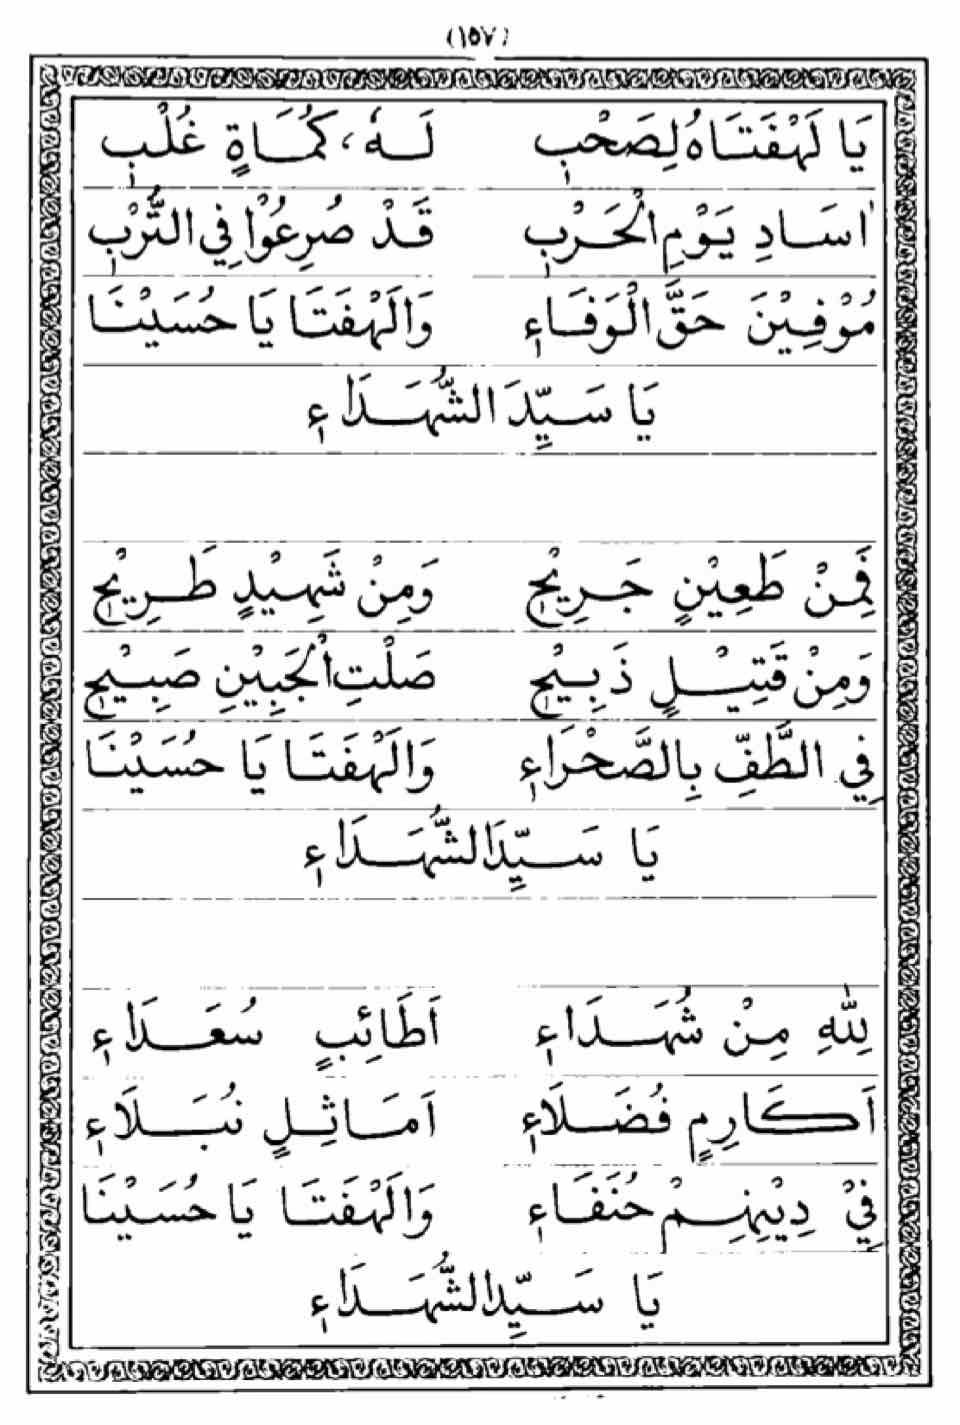 (١٥٧)
يَا لَهْفَتَاهُ لِصَحْبٍ لَـهٗ، كُمَـاةٍ غُلْبٍ
اٰسَـادِ يَـوْمِ الْحَـرْبِ قَـدْ صُرِعُوْا فِي التُّرْبِ
مُوْفِيْنَ حَقَّ الْوَفَـاءِ وَالَهْفَتَـا يَا حُسَيْنَـا
يَا سَـيِّدَ الشُّهَـدَاءِ
فَمِنْ طَعِيْنٍ جَـرِيْحٍ وَمِنْ شَهِـيْدٍ طَـرِيْحٍ
وَمِنْ قَتِيْـلٍ ذَبِـيْحٍ صَلْتِ الْجَبِيْنِ صَبِـيْحٍ
فِي الطَّفِّ بِالصَّحْرَاءِ وَالَهْفَتَـا يَا حُسَيْنَـا
يَا سَـيِّدَ الشُّهَـدَاءِ
لِلّٰهِ مِنْ شُهَـدَاءٍ اَطَائِبٍ سُعَـدَاءٍ
اَكَـارِمٍ فُضَـلَاءٍ اَمَـاثِـلٍ نُبَـلَاءٍ
فِيْ دِيْنِهِـمْ حُنَفَـاءٍ وَالَهْفَتَـا يَا حُسَيْنَـا
يَا سَـيِّدَ الشُّهَـدَاءِ